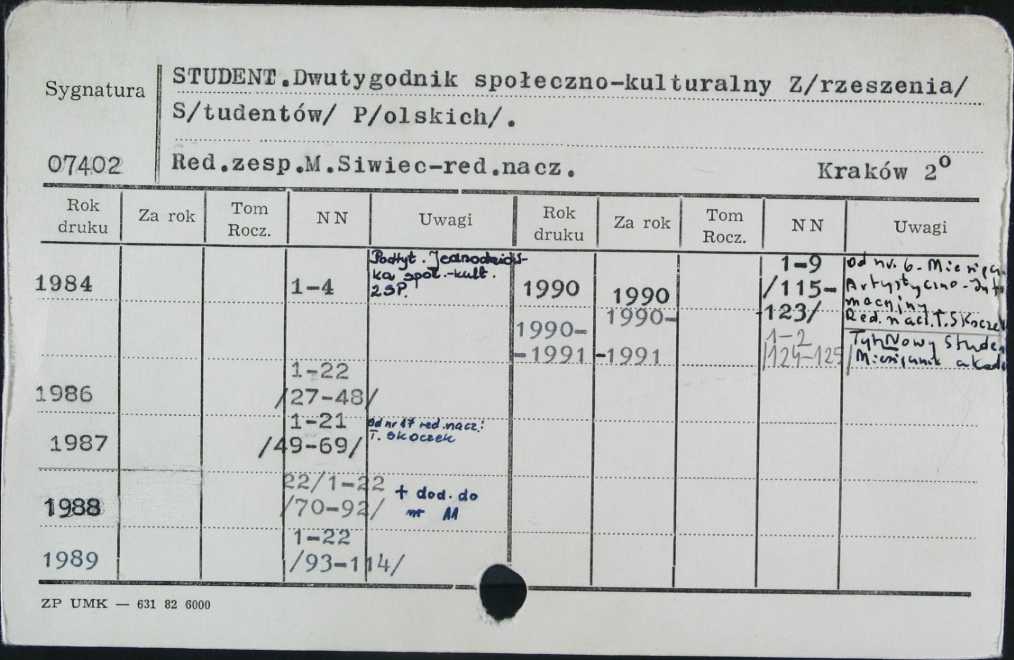 STUDENT.Dwutygodnik społeczno-kulturalny Z/rzeszenia/
Sygnatura
S/tudentów/ P/olskich/.
07402 Red.zesp.M.Siwiec-red.nacz. Kraków 2º
Rok druku Za rok Tom Rocz. NN Uwagi Rok druku Za rok Tom Rocz. NN Uwagi
1984 1-4
Podtyt. Jednodniów-
ka społ.-kult.
ZSP.
1990 1990 1-9
/115-
123/
Od nr. 6. Miesięcz
Artystyczno-Info
macyjny
Red. nacz. T. Skocze
1990-
-1991 1990-
-1991 1-2
/124-125/
Tyt: Nowy Stude
Miesięcznik akad
1986 1-22
/27-48/
1987 1-21
/49-69/
Od nr 17 red. nacz.:
T. Skoczek
1988 22/1-22
/70-92/
+ dod. do
nr 11
1989 1-22
/93-114/
ZP UMK — 631 82 6000